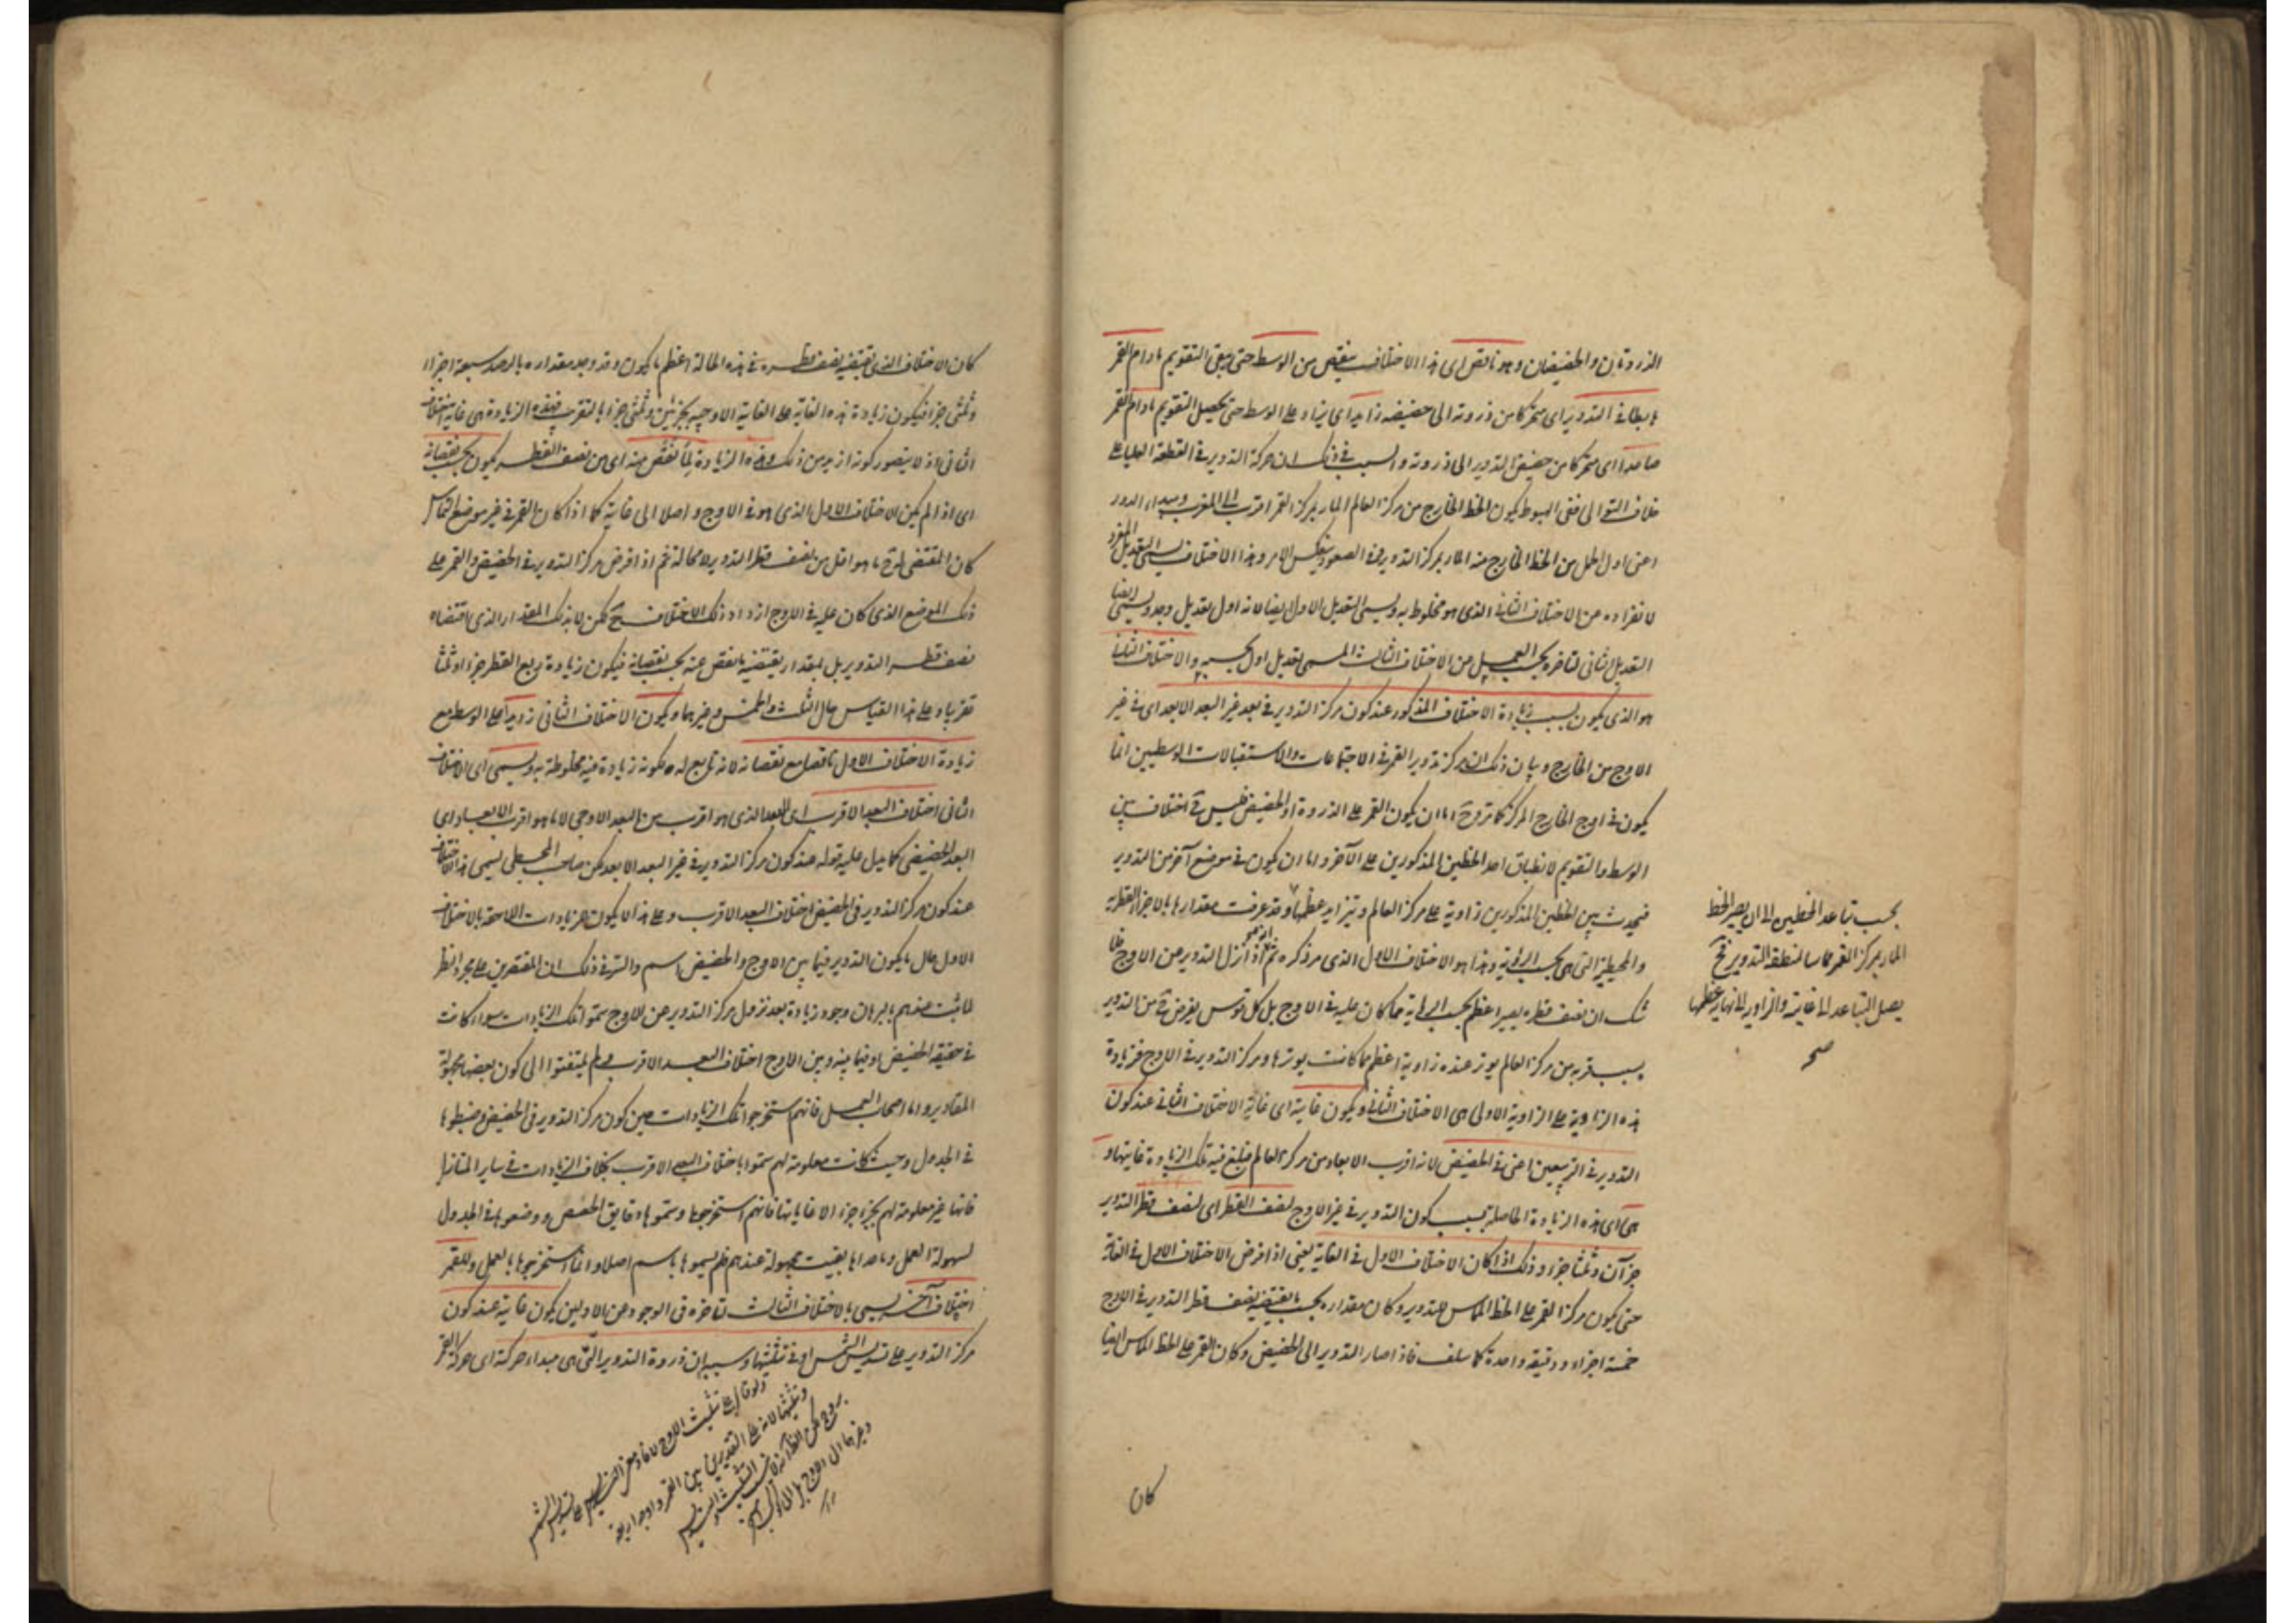 الذروتان والحضيضان وهو ناقص اى هذا الاختلاف ينقص من الوسط حتى يبقى التقويم مادام القمر
هابطا فى التدوير اى متحركا من ذروته الى حضيضه زايد اى يزاد على الوسط حتى يحصل التقويم مادام القمر
صاعدا اى متحركا من حضيض التدوير الى ذروته والسبب فى ذلك ان حركة التدوير فى القطعة العليا على
خلاف التوالى ففى الهبوط يكون الخط الخارج من مركز العالم المار بمركز القمر اقرب الى المغرب ومبداء الدور
اعنى اول الحمل من الخط الخارج منه المار بمركز التدوير وفى الصعود ينعكس الامر وهذا الاختلاف يسمى التعديل المفرد
لانفراده عن الاختلاف الثانى الذى هو مخلوط به ويسمى التعديل الاول ايضا لانه اول تعديل وجد ويسمى ايضا
التعديل الثانى لتاخره بحسب العمل من الاختلاف الثالث المسمى بتعديل اول والاختلاف الثانى
هو الذى يكون بسبب زيادة الاختلاف المذكور عند كون مركز التدوير فى بعد غير البعد الابعد اى فى غير
الاوج من الخارج وبيان ذلك ان مركز تدوير القمر فى الاجتماعات والاستقبالات الوسطيين انما
يكون فى اوج الخارج المركز كما مر وح اما ان يكون القمر على الذروة او الحضيض فليس ح اختلاف بين
الوسط والتقويم لانطباق احد الخطين المذكورين على الآخر واما ان يكون فى موضع آخر من التدوير
فيحدث بين الخطين المذكورين زاوية على مركز العالم وتتزايد عظمها وقد عرفت مقدارها بالاجزاء القطرية
والمحيطية التى هى بحسب الرؤية وهذا هو الاختلاف الاول الذى مر ذكره ثم انه اذا نزل التدوير من الاوج فلا
شك ان نصف قطره يصير اعظم بحسب الرؤية مما كان عليه فى الاوج بل كل قوس يفرض ح من التدوير
بسبب قربه من مركز العالم يوتر عنده زاوية اعظم مما كانت يوترها ومركز التدوير فى الاوج فزيادة
هذه الزاوية على الزاوية الاولى هى الاختلاف الثانى ويكون غايته اى غاية الاختلاف الثانى عند كون
التدوير فى التربيعين اعنى فى الحضيض لانه اقرب الابعاد من مركز العالم فتبلغ فيه تلك الزيادة غايتها و
هى اى هذه الزيادة الحاصلة بسبب كون التدوير فى غير الاوج لنصف القطر اى لنصف قطر التدوير
جزآن وثلثا جزء وذلك اذا كان الاختلاف الاول فى الغاية يعنى اذا فرض الاختلاف الاول فى الغاية
حتى يكون مركز القمر على الخط المماس للتدوير وكان مقداره بحسب ما يقتضيه نصف قطر التدوير فى الاوج
خمسة اجزاء ودقيقة واحدة كما سلف فاذا صار التدوير الى الحضيض وكان القمر على الخط المماس ايضا
كان
بحسب تباعد الخطين الى ان يصير الخط
المار بمركز القمر مماسا لمنطقة التدوير فح
يصل التباعد الى غايته والزاوية الى نهاية عظمها
صح
كان الاختلاف الذى يقتضيه نصف قطره فى هذه الحالة اعظم ما يكون وقد وجد مقداره بالرصد سبعة اجزاء
وثلثى جزء فيكون زيادة هذه الغاية على الغاية الاوجية بجزئين وثلثى جزء بالتقريب فهذه الزيادة هى غاية اختلاف
الثانى اذ لا يتصور كونه ازيد من ذلك وهذه الزيادة لما نقص منه اى من نصف القطر يكون بحسب نقصانه
اى اذا لم يكن الاختلاف الاول الذى هو فى الاوج واصلا الى غايته كما اذا كان القمر فى غير موضع التماس
كان المقتضى له ح ما هو اقل من نصف قطر التدوير لا محالة ثم اذا فرض مركز التدوير فى الحضيض والقمر على
ذلك الموضع الذى كان عليه فى الاوج ازداد ذلك الاختلاف ح لكن لا بذلك المقدار الذى اقتضاه
نصف قطر التدوير بل بمقدار يقتضيه ما نقص عنه بحسب نقصانه فيكون زيادة ربع القطر جزءا وثلثا
تقريبا وعلى هذا القياس حال الثلث والخمس وغيرهما ويكون الاختلاف الثانى زايدا على الوسط مع
زيادة الاختلاف الاول ناقصا مع نقصانه لانه تابع له لكونه زيادة فيه مخلوطة به ويسمى اى الاختلاف
الثانى اختلاف البعد الاقرب اى البعد الذى هو اقرب من البعد الاوجى لا ما هو اقرب الابعاد اى
البعد الحضيضى كما يدل عليه قوله عند كون مركز التدوير فى غير البعد الابعد لكن صاحب المجسطى يسمى هذا الاختلاف
عند كون مركز التدوير فى الحضيض اختلاف البعد الاقرب وعلى هذا لا يكون للزيادات اللاحقة بالاختلاف
الاول حال ما يكون التدوير فيما بين الاوج والحضيض اسم والسر فى ذلك ان المقتصرين على مجرد النظر
لما ثبت عندهم بالبرهان وجود زيادة بعد نزول مركز التدوير عن الاوج سموا تلك الزيادات سواء كانت
فى حقيقة الحضيض او فيما بينه وبين الاوج اختلاف البعد الاقرب ولم يلتفتوا الى كون بعضها مجهولة
المقادير واما اصحاب العمل فانهم استخرجوا تلك الزيادات حين كون مركز التدوير فى الحضيض وضبطوها
فى الجدول وحيث كانت معلومة لهم سموها باختلاف البعد الاقرب بخلاف الزيادات فى ساير المنازل
فانها غير معلومة لهم بجزء جزء الا غاياتها فانهم استخرجوها وسموها دقايق الحصص ووضعوها فى الجدول
لسهولة العمل وما عداها بقيت مجهولة عندهم فلم يسموها باسم اصلا وانما استخرجوها بالعمل وللقمر
اختلاف آخر يسمى بالاختلاف الثالث لتاخره فى الوجود عن الاولين يكون غايته عند كون
مركز التدوير على تسديس الشمس او فى تثليثها وسببه ان ذروة التدوير التى هى مبداء حركته اى حركة القمر